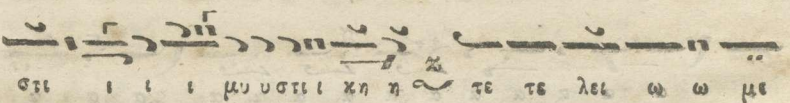 στι ι ι ι μυ υστι ι κη η τε τε λει ω ω με